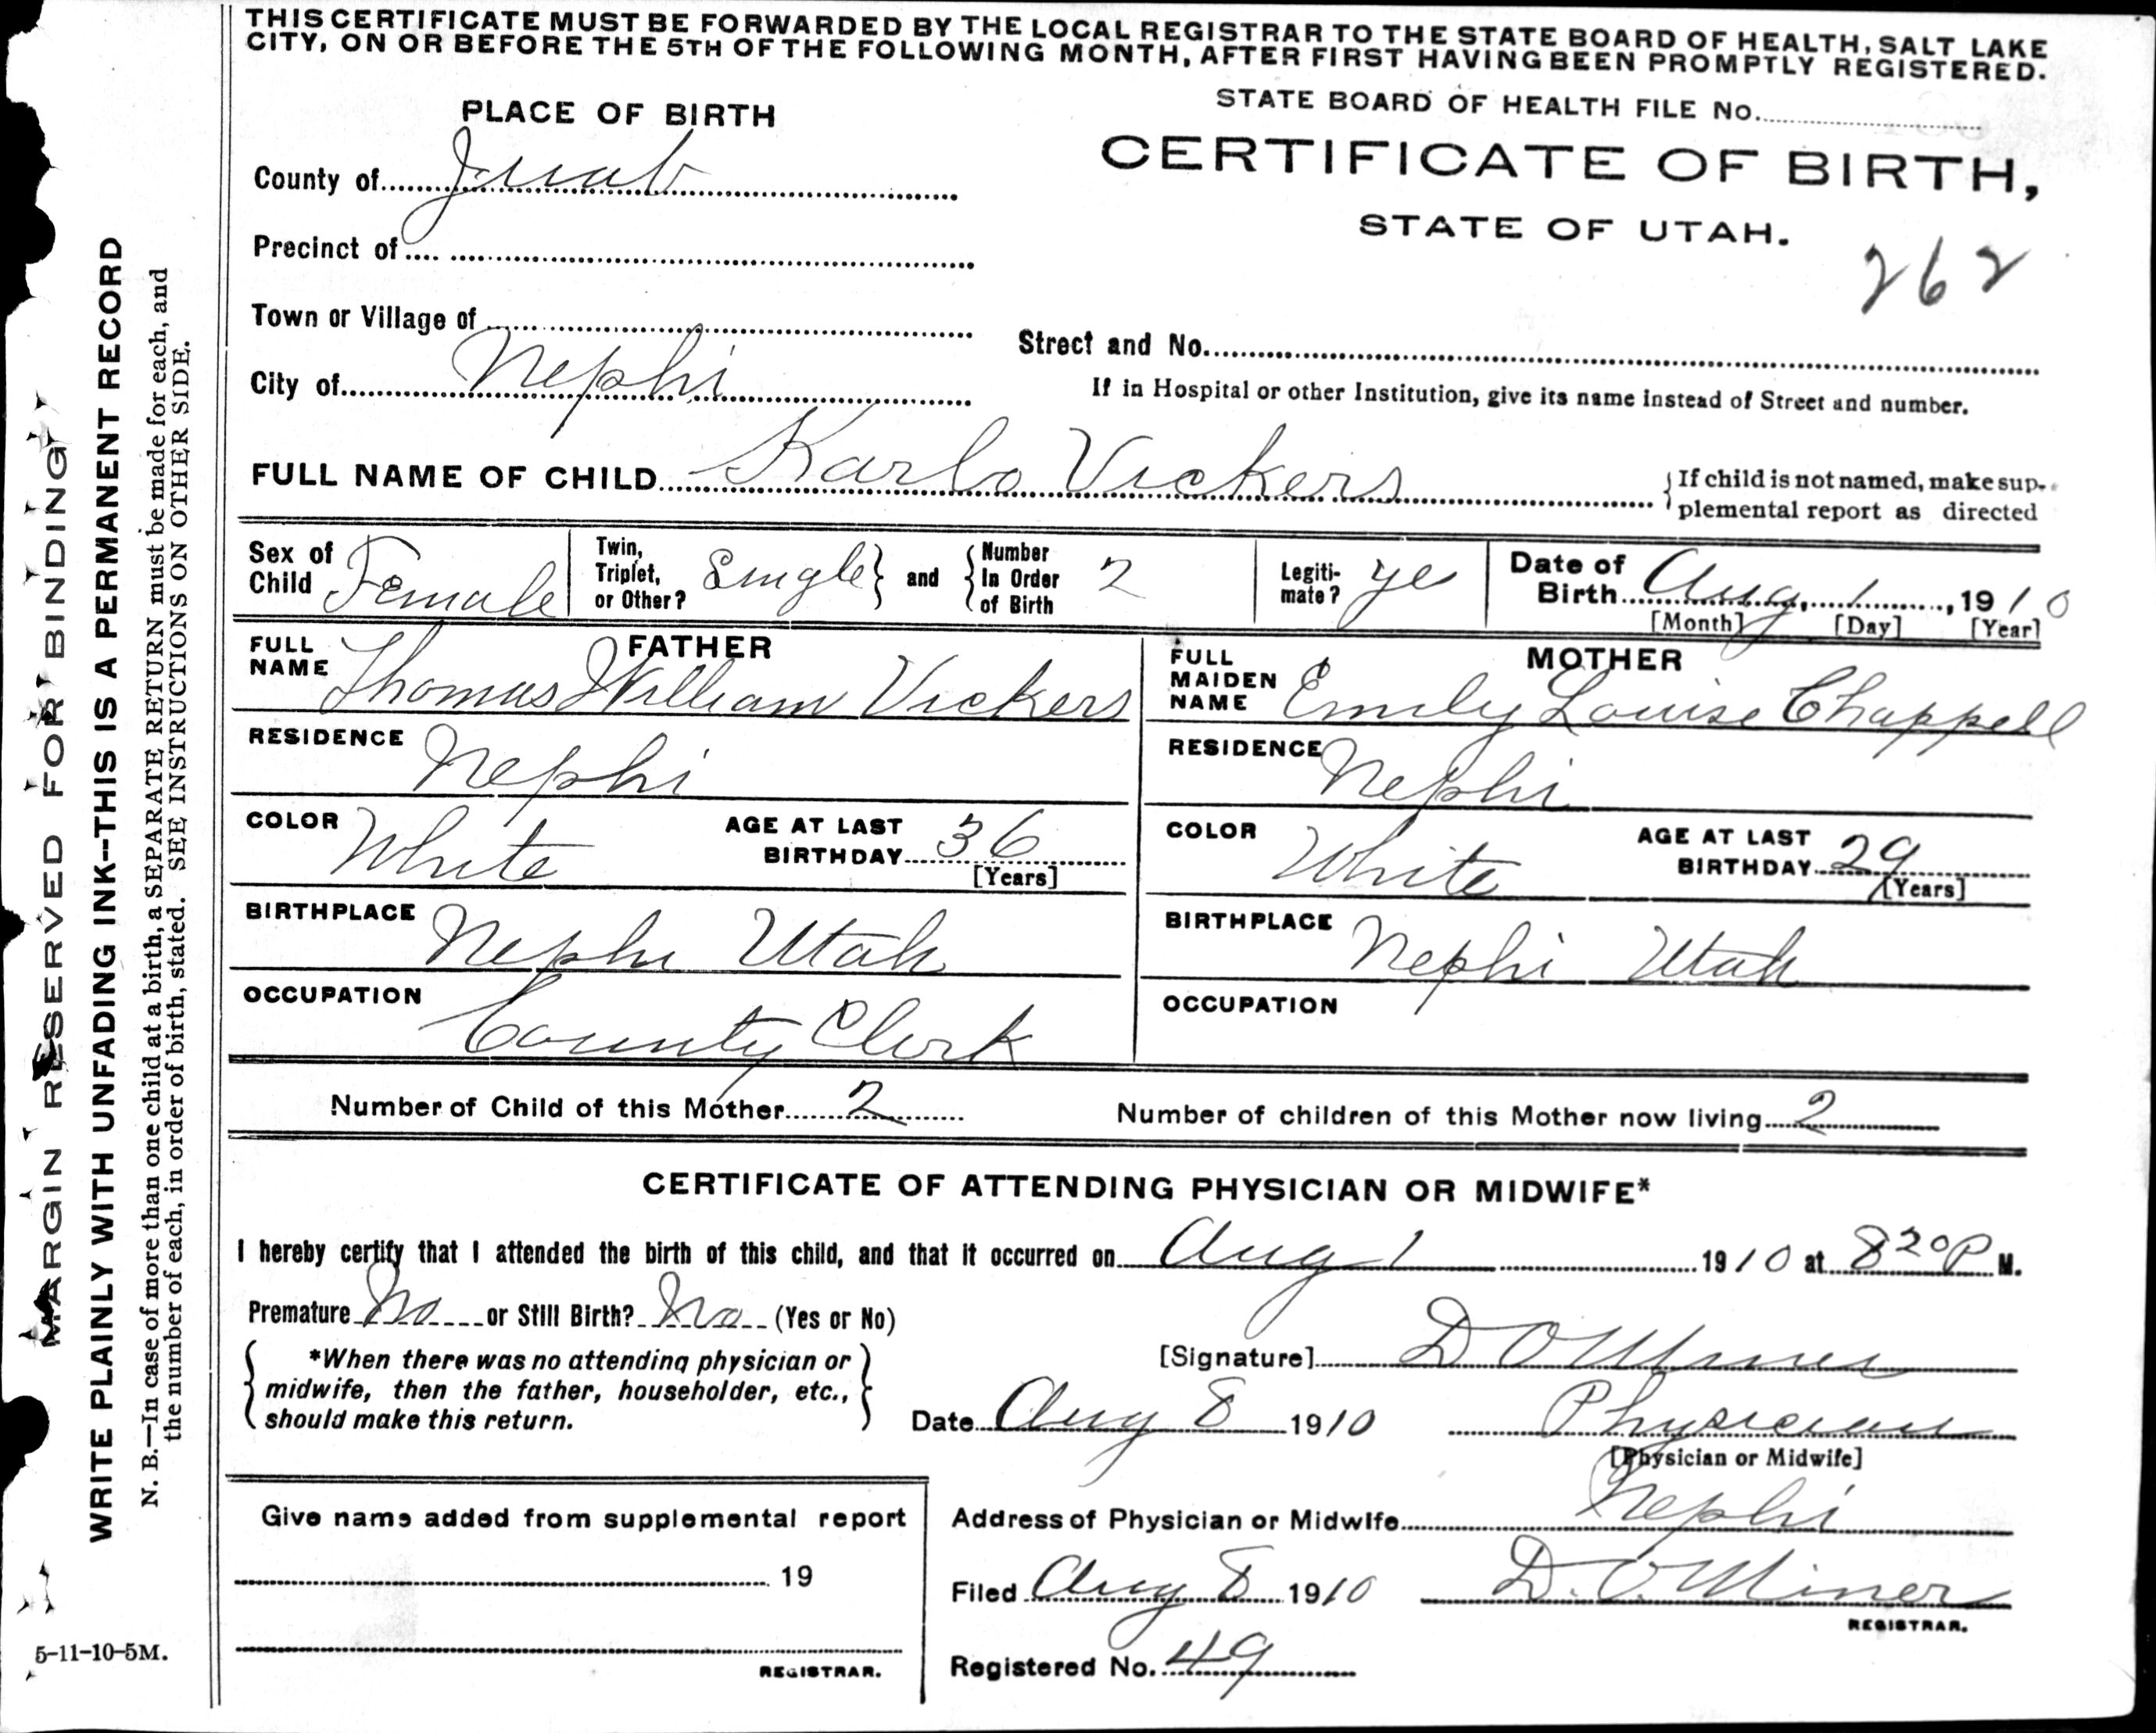 THIS CERTIFICATE MUST BE FORWARDED BY THE LOCAL REGISTRAR TO THE STATE BOARD OF HEALTH, SALT LAKE
CITY, ON OR BEFORE THE 5TH OF THE FOLLOWING MONTH, AFTER FIRST HAVING BEEN PROMPTLY REGISTERED.
STATE BOARD OF HEALTH FILE No.
CERTIFICATE OF BIRTH,
STATE OF UTAH.
262
PLACE OF BIRTH
County of Juab
Precinct of
Town or Village of
City of Nephi
Street and No.
If in Hospital or other Institution, give its name instead of Street and number.
FULL NAME OF CHILD Karla Vickers
If child is not named, make sup-
plemental report as directed
Sex of Child Female
Twin, Triplet, or Other? Single and Number In Order of Birth 2
Legiti-mate? ye
Date of Birth Aug. 1, 1910
[Month] [Day] [Year]
FATHER
FULL NAME Thomas William Vickers
RESIDENCE Nephi
COLOR White AGE AT LAST BIRTHDAY 36
[Years]
BIRTHPLACE Nephi Utah
OCCUPATION County Clerk
MOTHER
FULL MAIDEN NAME Emily Louise Chappell
RESIDENCE Nephi
COLOR White AGE AT LAST BIRTHDAY 29
[Years]
BIRTHPLACE Nephi Utah
OCCUPATION
Number of Child of this Mother 2 Number of children of this Mother now living 2
CERTIFICATE OF ATTENDING PHYSICIAN OR MIDWIFE*
I hereby certify that I attended the birth of this child, and that it occurred on Aug 1 1910 at 8 20 P M.
Premature No or Still Birth? No (Yes or No)
*When there was no attending physician or
midwife, then the father, householder, etc.,
should make this return.
[Signature] D O Miner
Date Aug 8 1910 Physician
[Physician or Midwife]
Address of Physician or Midwife Nephi
Filed Aug 8 1910 D. O. Miner
REGISTRAR.
Registered No. 49
Give name added from supplemental report
19
REGISTRAR.
MARGIN RESERVED FOR BINDING
WRITE PLAINLY WITH UNFADING INK--THIS IS A PERMANENT RECORD
N. B.—In case of more than one child at a birth, a SEPARATE RETURN must be made for each, and
the number of each, in order of birth, stated. SEE INSTRUCTIONS ON OTHER SIDE.
5-11-10-5M.